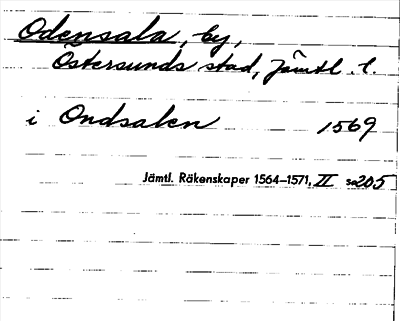 Odensala, by,
Östersunds stad, Jämtl. l.
i Ondsalen 1569
Jämtl. Räkenskaper 1564–1571, II s 205